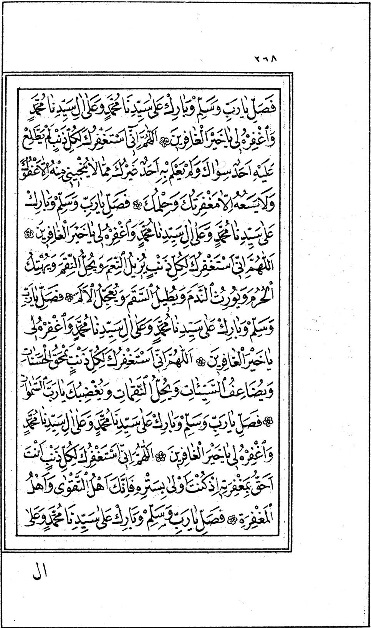 ٢٦٨
فَصَلِّ يَا رَبِّ وَسَلِّمْ وَبَارِكْ عَلَى سَيِّدِنَا مُحَمَّدٍ وَعَلَى اٰلِ سَيِّدِنَا مُحَمَّدٍ
وَاغْفِرْهُ لِي يَا خَيْرَ الْغَافِرِينَ ۞ اَللّٰهُمَّ اِنِّي اَسْتَغْفِرُكَ لِكُلِّ ذَنْبٍ لَمْ يَطَّلِعْ
عَلَيْهِ اَحَدٌ سِوَاكَ وَلَمْ يَعْلَمْ بِهِ اَحَدٌ غَيْرُكَ مِمَّا لَا يُنْجِينِي مِنْهُ اِلَّا عَفْوُكَ
وَلَا يَسَعُهُ اِلَّا مَغْفِرَتُكَ وَحِلْمُكَ ۞ فَصَلِّ يَا رَبِّ وَسَلِّمْ وَبَارِكْ
عَلَى سَيِّدِنَا مُحَمَّدٍ وَعَلَى اٰلِ سَيِّدِنَا مُحَمَّدٍ وَاغْفِرْهُ لِي يَا خَيْرَ الْغَافِرِينَ ۞
اَللّٰهُمَّ اِنِّي اَسْتَغْفِرُكَ لِكُلِّ ذَنْبٍ يُزِيلُ النِّعَمَ وَيُحِلُّ النِّقَمَ وَيَهْتِكُ
الْحُرَمَ وَيُورِثُ النَّدَمَ وَيُطِيلُ السَّقَمَ وَيُعَجِّلُ الْاَلَمَ ۞ فَصَلِّ يَا رَبِّ
وَسَلِّمْ وَبَارِكْ عَلَى سَيِّدِنَا مُحَمَّدٍ وَعَلَى اٰلِ سَيِّدِنَا مُحَمَّدٍ وَاغْفِرْهُ لِي
يَا خَيْرَ الْغَافِرِينَ ۞ اَللّٰهُمَّ اِنِّي اَسْتَغْفِرُكَ لِكُلِّ ذَنْبٍ يَمْحَقُ الْحَسَنَاتِ
وَيُضَاعِفُ السَّيِّئَاتِ وَيُحِلُّ النَّقِمَاتِ وَيُغْضِبُكَ يَا رَبَّ السَّمٰوَاتِ
۞ فَصَلِّ يَا رَبِّ وَسَلِّمْ وَبَارِكْ عَلَى سَيِّدِنَا مُحَمَّدٍ وَعَلَى اٰلِ سَيِّدِنَا مُحَمَّدٍ
وَاغْفِرْهُ لِي يَا خَيْرَ الْغَافِرِينَ ۞ اَللّٰهُمَّ اِنِّي اَسْتَغْفِرُكَ لِكُلِّ ذَنْبٍ اَنْتَ
اَحَقُّ بِمَغْفِرَتِهِ اِذْ كُنْتَ اَوْلٰى بِسَتْرِهِ فَاِنَّكَ اَهْلُ التَّقْوٰى وَاَهْلُ
الْمَغْفِرَةِ ۞ فَصَلِّ يَا رَبِّ وَسَلِّمْ وَبَارِكْ عَلَى سَيِّدِنَا مُحَمَّدٍ وَعَلَى
اٰل